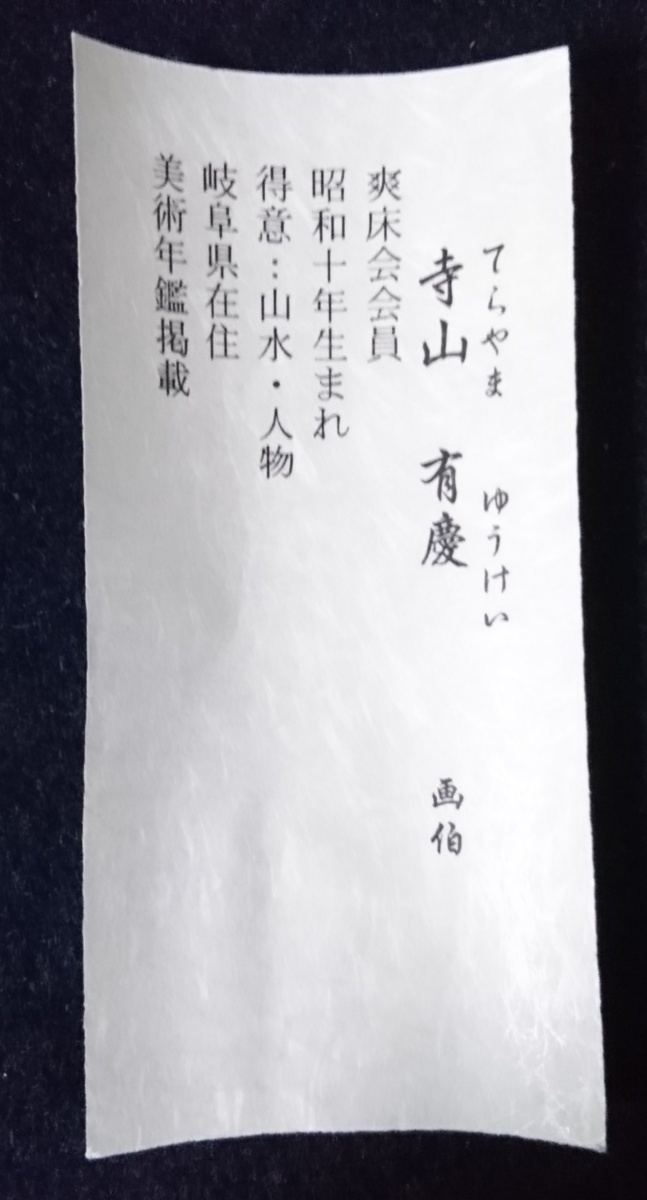 てらやま ゆうけい
寺山 有慶 画伯
爽床会会員
昭和十年生まれ
得意：山水・人物
岐阜県在住
美術年鑑掲載